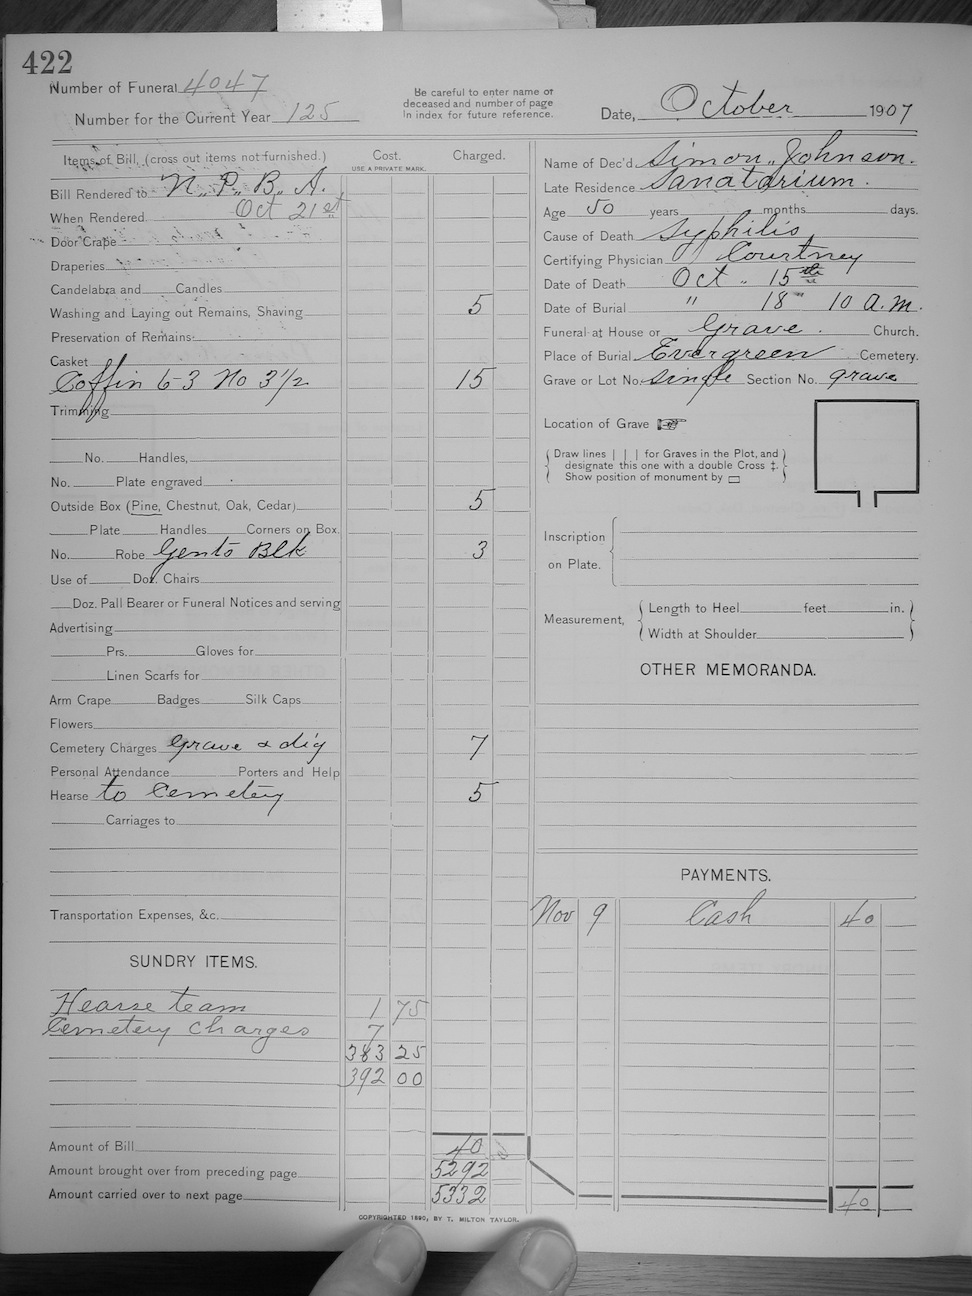 422
Number of Funeral 4047
Number for the Current Year 125
Be careful to enter name of
deceased and number of page
in index for future reference.
Date, October 1907
Items of Bill, (cross out items not furnished.) Cost. Charged.
USE A PRIVATE MARK.
Bill Rendered to N.P.B.A.
When Rendered Oct 21st
Door Crape
Draperies
Candelabra and Candles
Washing and Laying out Remains, Shaving 5
Preservation of Remains:
Casket
Coffin 6-3 No 3½ 15
Trimming
No. Handles,
No. Plate engraved
Outside Box (Pine, Chestnut, Oak, Cedar) 5
Plate Handles Corners on Box.
No. Robe Gents Blk 3
Use of Doz. Chairs
Doz. Pall Bearer or Funeral Notices and serving
Advertising
Prs. Gloves for
Linen Scarfs for
Arm Crape Badges Silk Caps
Flowers
Cemetery Charges Grave & dig 7
Personal Attendance Porters and Help
Hearse to Cemetery 5
Carriages to
Transportation Expenses, &c.
SUNDRY ITEMS.
Hearse team 1 75
Cemetery Charges 7
383 25
392 00
Amount of Bill 40
Amount brought over from preceding page 5292
Amount carried over to next page 5332
Name of Dec'd Simon Johnson.
Late Residence Sanatarium.
Age 50 years months days.
Cause of Death Syphilis
Certifying Physician Courtney
Date of Death Oct. 15th
Date of Burial " 18" 10 A.M.
Funeral at House or Grave. Church.
Place of Burial Evergreen Cemetery.
Grave or Lot No. single Section No. grave
Location of Grave
Draw lines | | | for Graves in the Plot, and
designate this one with a double Cross ‡.
Show position of monument by ▭
Inscription
on Plate.
Measurement, Length to Heel feet in.
Width at Shoulder
OTHER MEMORANDA.
PAYMENTS.
Nov 9 Cash 40
40
COPYRIGHTED 1890, BY T. MILTON TAYLOR.